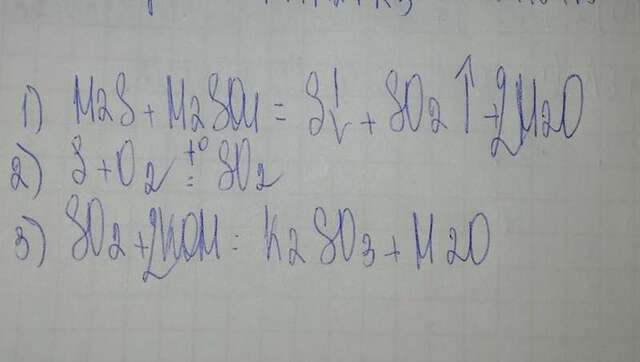 1) H2S + H2SO4 = S↓ + SO2↑ + 2H2O
2) S + O2 t° = SO2
3) SO2 + 2KOH = K2SO3 + H2O